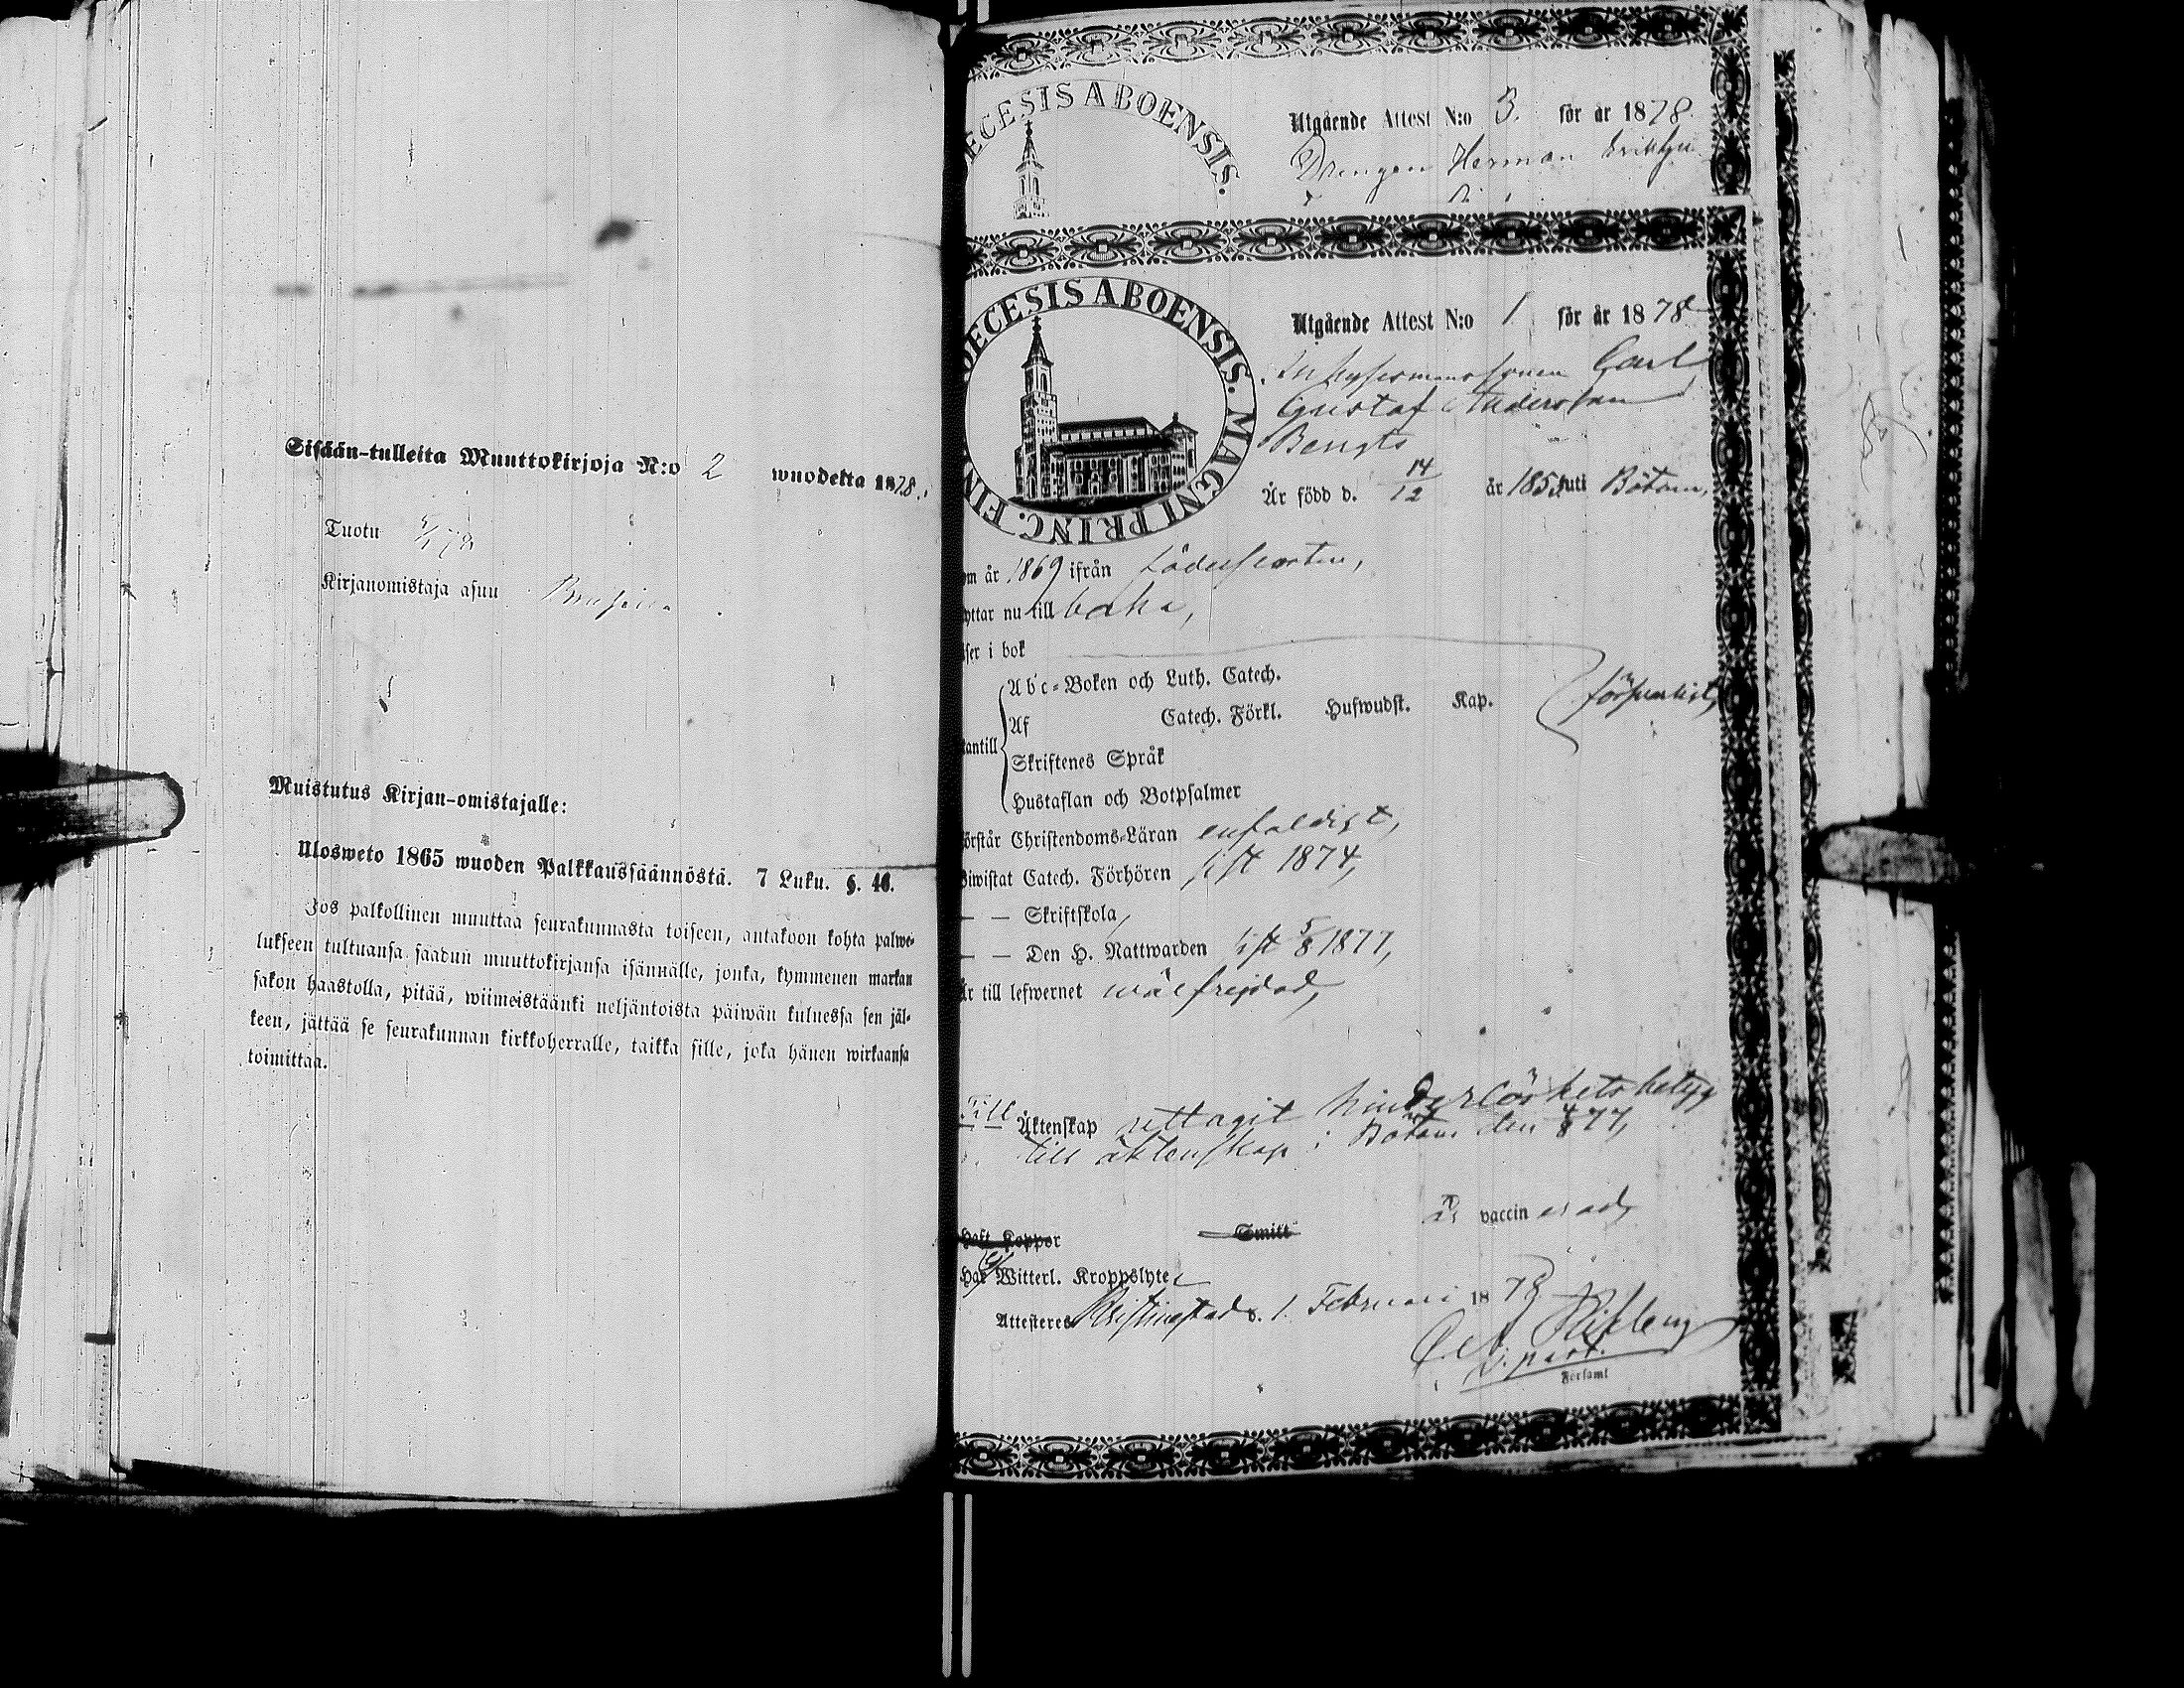 Sisään-tulleita Muuttokirjoja N:o 2 wuodelta 1878.
Tuotu
Kirjanomistaja asuu
Muistutus Kirjan-omistajalle:
Ulosweto 1865 wuoden Palkkaussäännöstä. 7 Luku. §. 40.
Jos palkollinen muuttaa seurakunnasta toiseen, antakoon kohta palwe-
lukseen tultuansa saadun muuttokirjansa isännälle, jonka, kymmenen markan
sakon haastolla, pitää, wiimeistäänki neljäntoista päiwän kuluessa sen jäl-
keen, jättää se seurakunnan kirkkoherralle, taikka sille, joka hänen wirkaansa
toimittaa.
ECESIS ABOENSIS.
Utgående Attest N:o 3. för år 1878.
Drengen Herman
DECESIS ABOENSIS. MAGNI PRINC. FIN
Utgående Attest N:o 1 för år 1878
Inhysesmanssonen Carl
Gustaf Andersson
Bengts
Är född d. 14/12 år 185 uti Bötom,
om år 1869 ifrån födelseorten,
yttar nu till baka,
ser i bok
Abc-Boken och Luth. Catech.
Af Catech. Förkl. Hufwudst. Kap. försvarligt,
tantill
Skriftenes Språk
Hustaflan och Botpsalmer
örstår Christendoms-Läran enfaldigt,
iwistat Catech. Förhören sist 1874,
— — Skriftskola,
— — Den H. Nattwarden sist 5/8 1877,
är till lefwernet wälfrejdad,
Till Äktenskap uttagit hinderlöshetsbetyg
till äktenskap i Bötom den 4/8 77,
Haft Koppor Smitt är vaccinerad,
Har Witterl. Kroppslyte
Attesteres Kristinestad d. 1. Februari 1878
v. past.
Församl